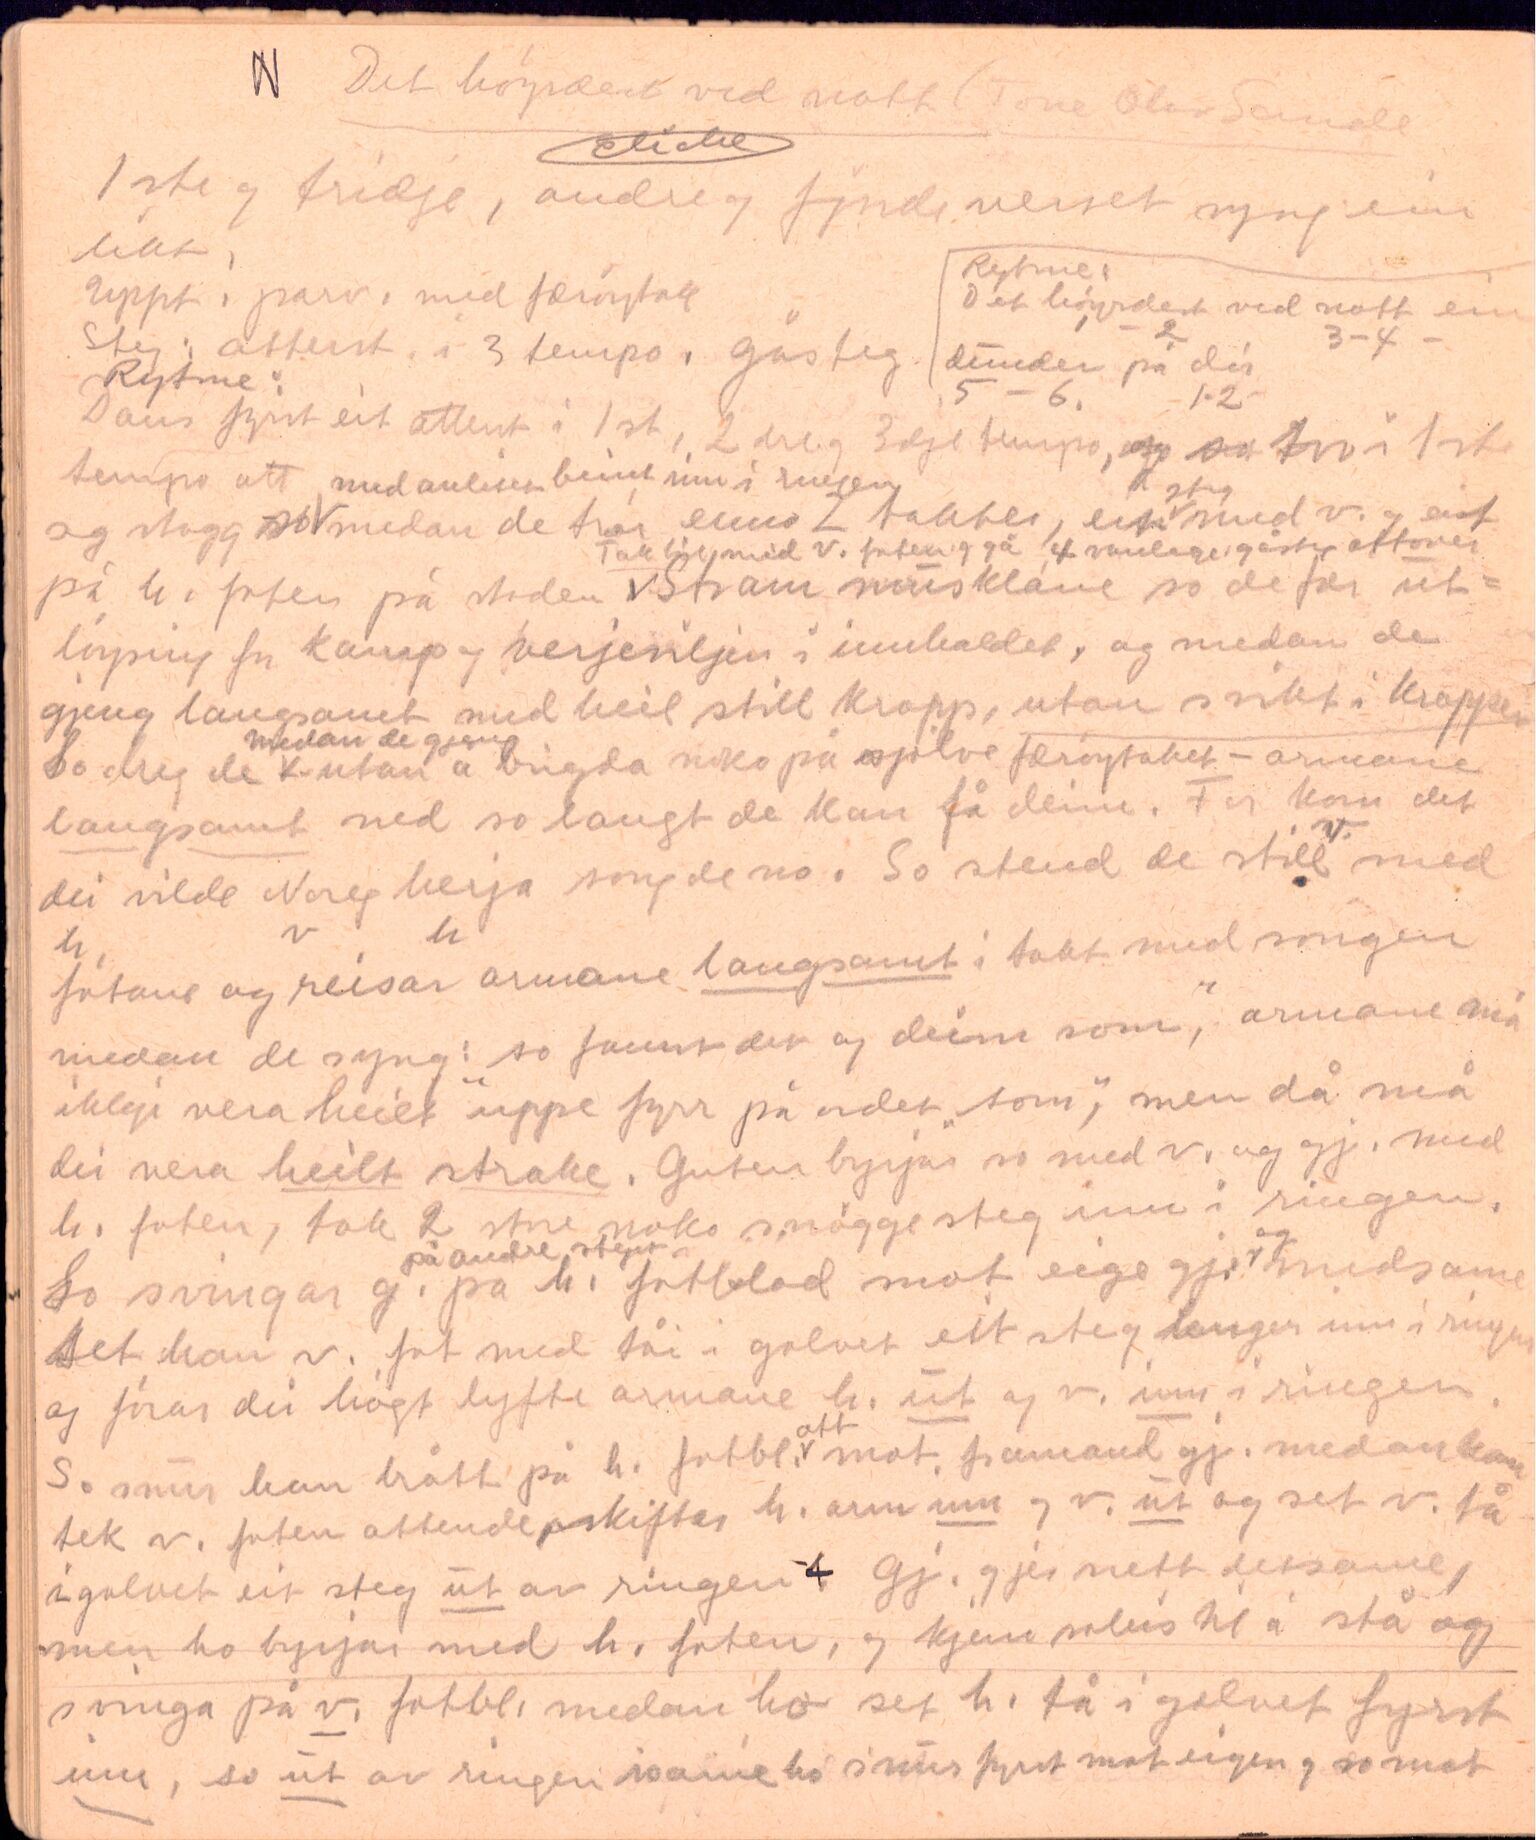 N Det höyrdest ved nott (Tone Olav Sande
1ste og tridje, andre og fjorde verset syng ein
likt.
Uppst. parv. med færöytak
Steg: atterst. i 3 tempo. gåsteg
Rytme:
Det höyrdest ved nott ein
1 - 2 3-4 -
dunder på dör
5 - 6. 1-2-
Rytme:
Dans fyrst eit atterst i 1st, 2dre og 3dje tempo, so tvo i 1ste
tempo att med andletet beint inn i ringen
og stogg so medan de trör enno 2 takter, eit steg med v. og eit
Tak so med v. foten og gå 4 vanlege gåsteg attover
på h. foten på staden V Stram musklane so de fær ut=
löysing for kamp og verjeviljen i innhaldet, og medan de
gjeng langsamt med heil still kropp, utan svikt i kroppen
medan de gjeng
So dreg de V utan å brigda noko på sjölve færöytaket - armane
langsamt ned so langt de kan få deim. For kom det
dei vilde Noreg herja song de no. So stend de still v. med
h. v h
fotane og reisar armane langsamt i takt med songen
medan de syng: so fannst det og deim som", armane må
ikkje vera heilt uppe fyrr på ordet "som", men då må
dei vera heilt strake. Guten byrjar so med v. og gj. med
h. foten, tak 2 store noko snögge steg inn i ringen.
på andre steget og
So svingar g. på h. fotblad mot eige gj. V medsame
set han v. fot med tåi i golvet eit steg lenger inn i ringen
og förar dei högt lyfte armane h. ut og v. inn i ringen.
att
So snur han brått på h. fotbl. V mot framand gj. medan han
tek v. foten attende, skiftar h. arm inn og v. ut og set v. tå
i golvet eit steg ut av ringen. Gj. gjer nett detsame,
men ho byrjar med h. foten, og kjem soleis til å stå og
svinga på v. fotbl. medan ho set h. tå i golvet fyrst
inn, so ut av ringen ho snur fyrst mot eigen og so mot